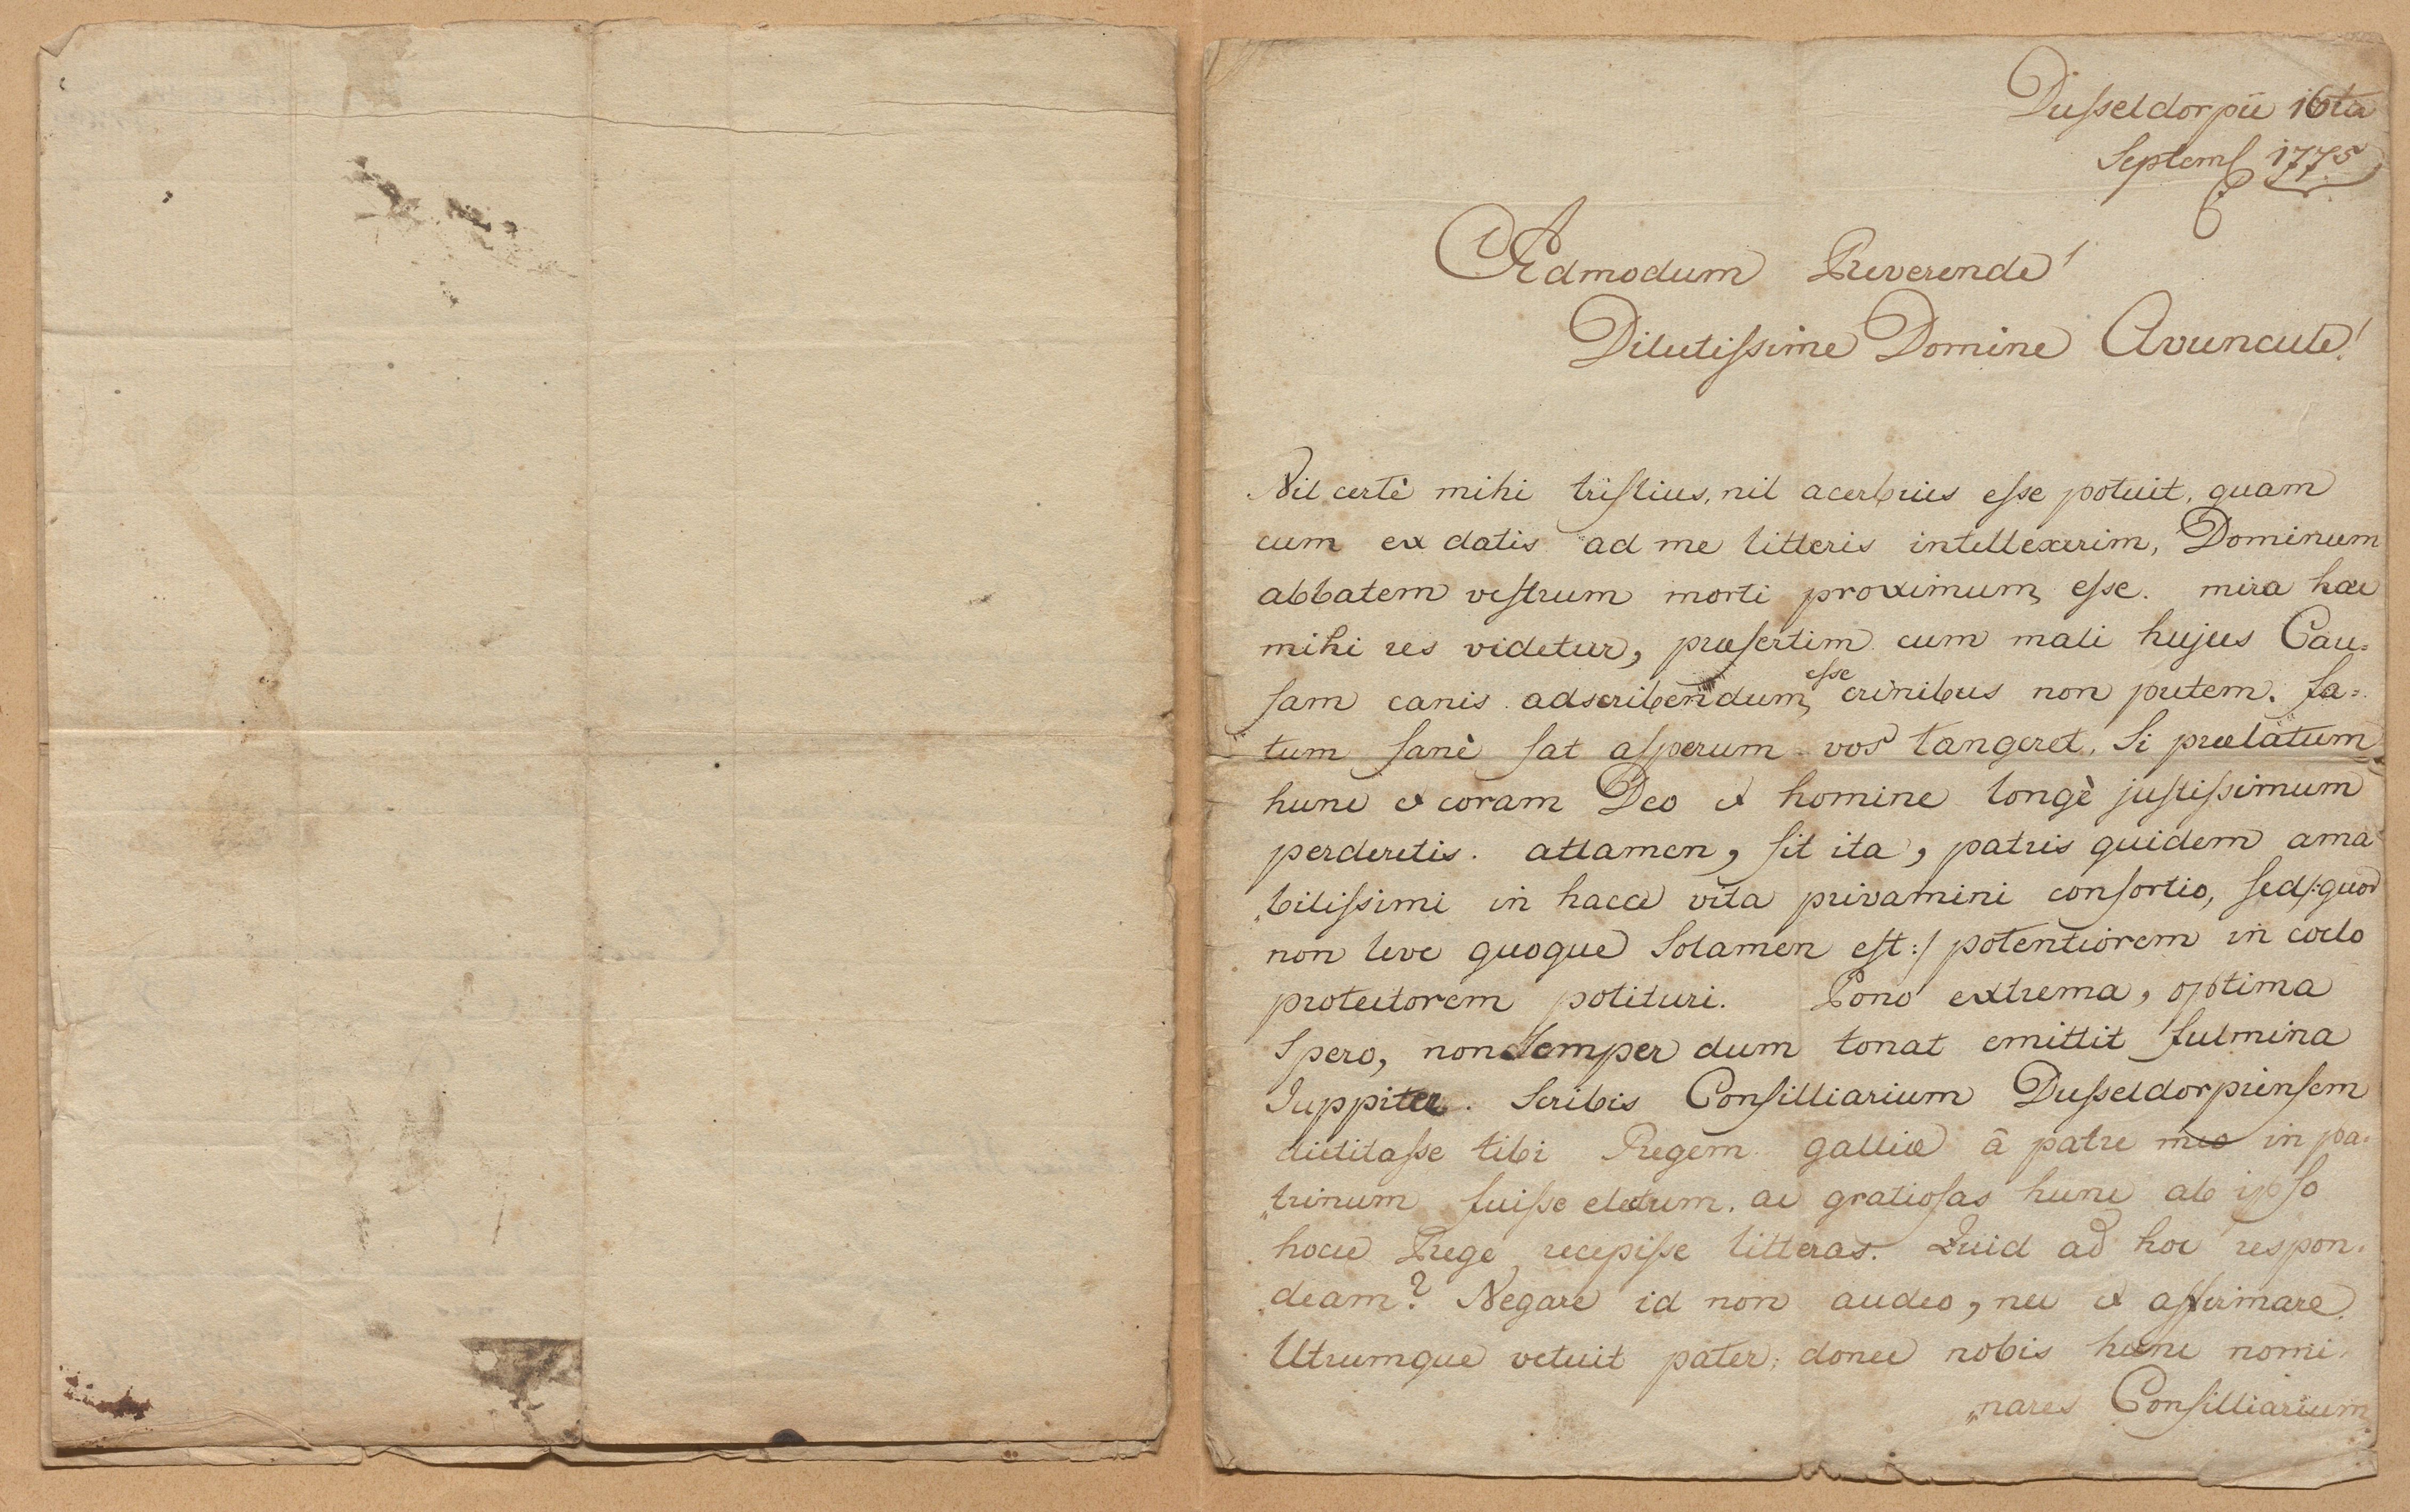 Dusseldorpii 16ta
Septemb 1775
Admodum Reverende!
Dilectissime Domine Avuncule!
Nil certè mihi tristius, nil acerbius esse potuit, quam
cum ex datis ad me litteris intellexerim, Dominum
abbatem vestrum morti proximum esse. mira haec
mihi res videtur, praesertim cum mali hujus Cau=
sam canis adscribendum esse crinibus non putem. fa=
tum sanè sat asperum vos tangeret, si praelatum
hunc et coram Deo et homine longè justissimum
perderetis. attamen, sit ita, patris quidem ama
bilissimi in hacce vita privamini consortio, sed/:quod
non leve quoque solamen est:/ potentiorem in coelo
protectorem potituri. Pono extrema, optima
spero, non semper dum tonat emittit fulmina
Juppiter. Scribis Consilliarium Dusseldorpiensem
dictitasse tibi Regem galliae â patre meo in pa=
trinum fuisse electum. ac gratiosas hunc ab ipso
hocce Rege recepisse litteras. Quid ad hoc respon=
deam? Negare id non audeo, nec et affirmare.
Utrumque vetuit pater, donec nobis hunc nomi=
nares Consilliarium